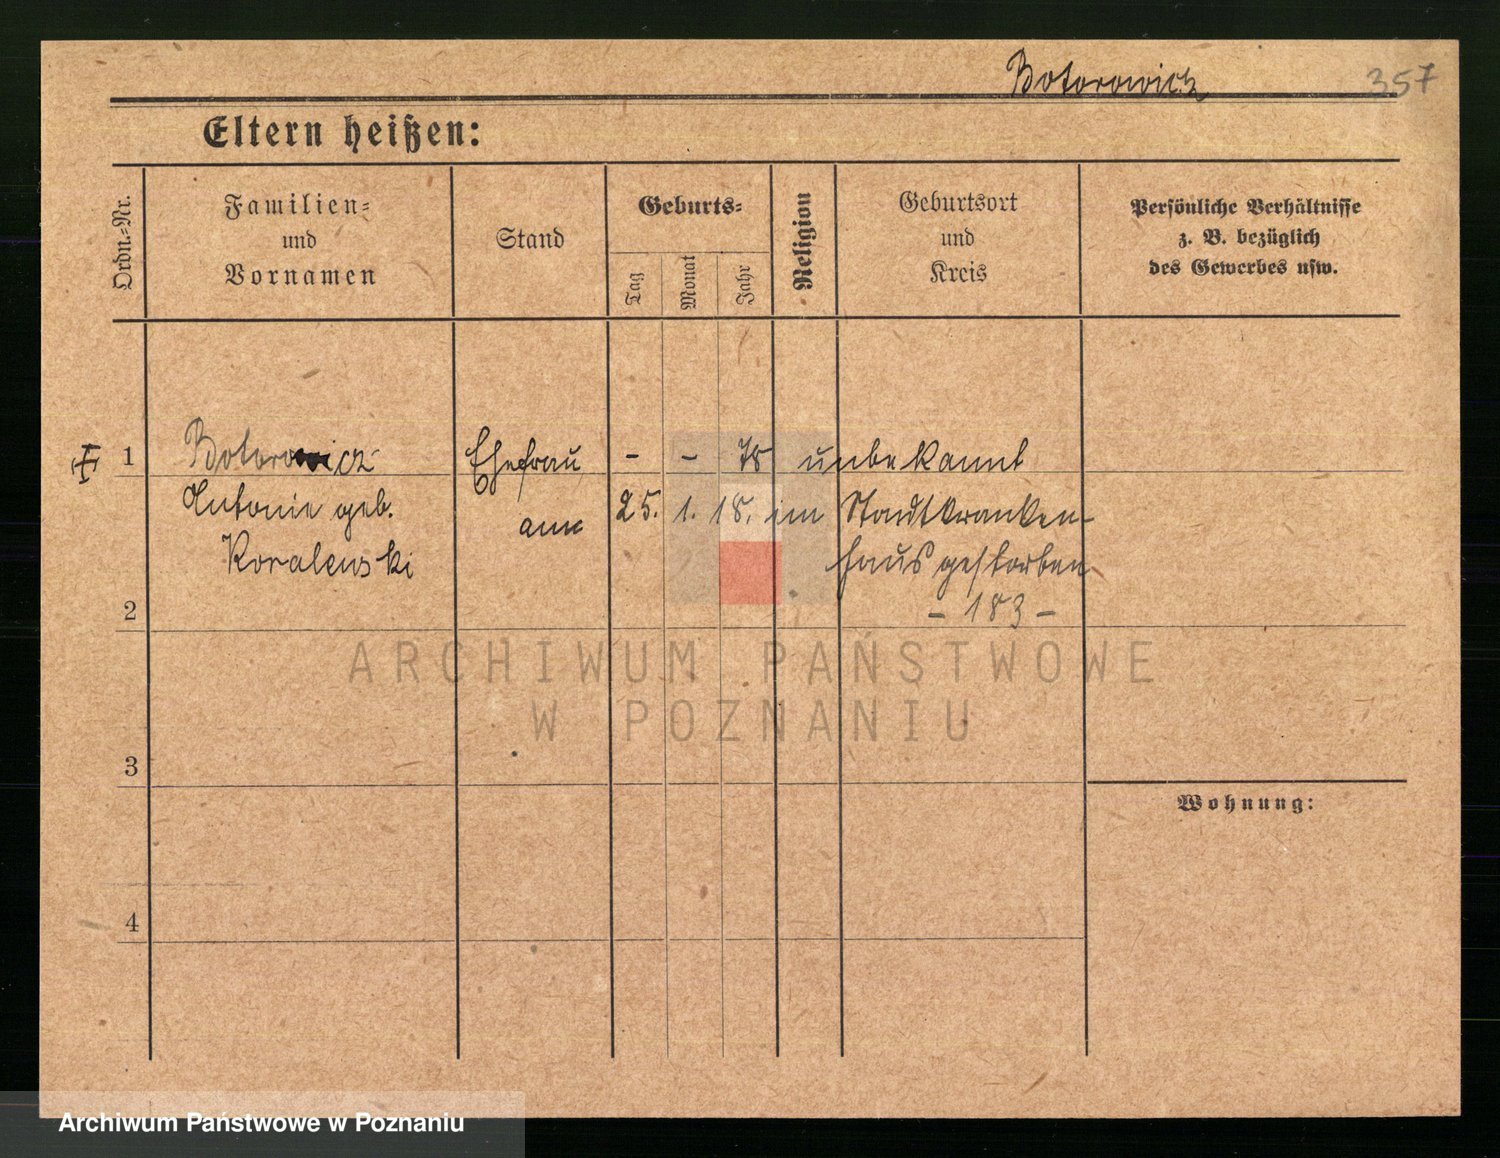 Botorowicz 357
Eltern heißen:
Ordn.-Nr.
Familien-
und
Vornamen
Stand
Geburts-
Tag
Monat
Jahr
Religion
Geburtsort
und
Kreis
Persönliche Verhältnisse
z. B. bezüglich
des Gewerbes usw.
1 Botorowicz Ehefrau - - 78 unbekannt
Antonie geb. am 25. 1. 18. im Stadtkranken-
Koralewski haus gestorben
2 - 183 -
ARCHIWUM PAŃSTWOWE
W POZNANIU
3
Wohnung:
4
Archiwum Państwowe w Poznaniu